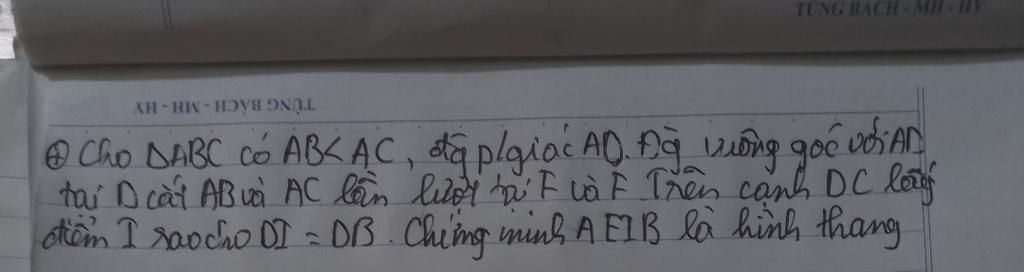 TÙNG BÁCH - MH - HY
TÙNG BÁCH - MH - HY
⊕ Cho ΔABC có AB< AC, đg p/giác AD. Đg vuông góc với AD
tại D cắt AB và AC lần lượt tại F và F. Trên cạnh DC lấy
điểm I sao cho DI = DB. Chứng minh AEIB là hình thang